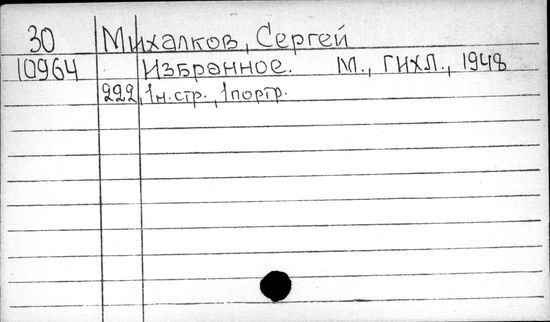 30 Михалков, Сергей
10964 Избранное. М., ГИХЛ., 1948
222, 1н.стр., 1портр.